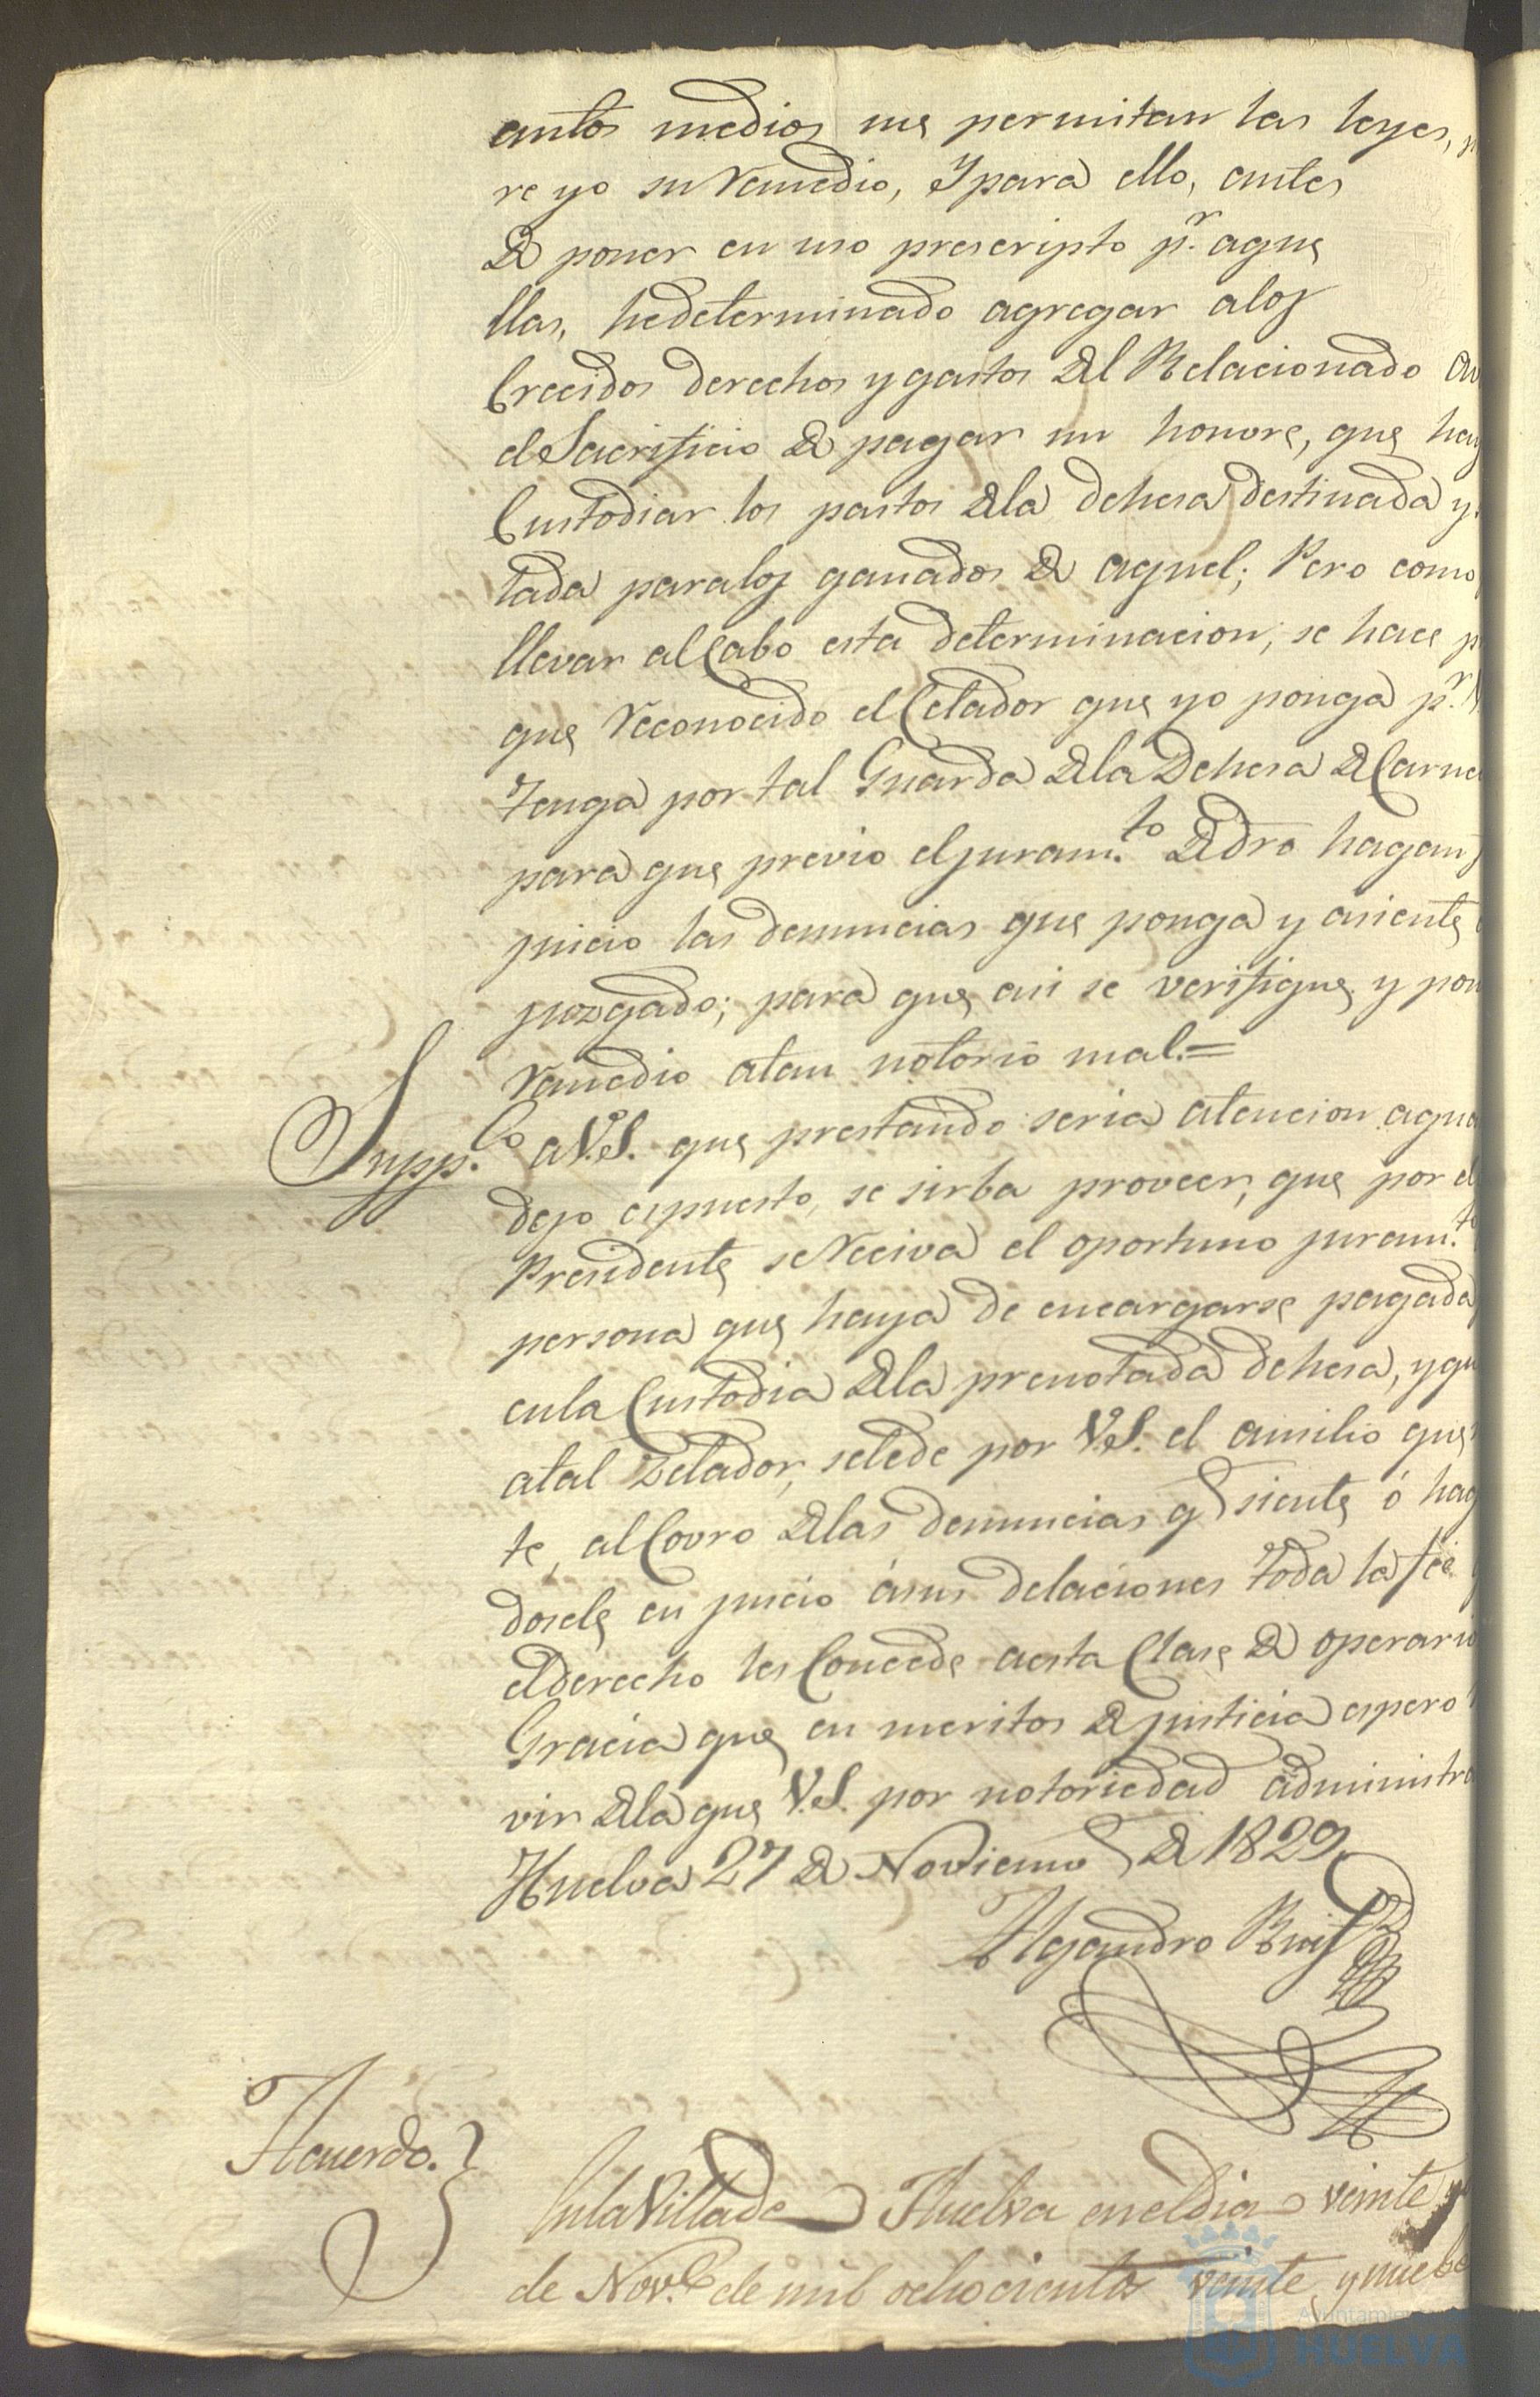 antos medios me permitan las leyes,
re yo su remedio, Y para ello, antes
de poner en uso prescripto pr. aque
llas, hedeterminado agregar alos
Crecidos derechos y gastos del Relacionado
el Sacrificio de pagar un honvre, que
Custodiar los pastos dela dehesa destinada y
tada paralos ganados de aquel; Pero como
llevar al Cabo esta determinacion, se hace
que reconocido el Celador que yo ponga pr.
Tenga por tal Guarda dela Dehesa de Carne
para que previo el juram.to de dro hagan
juicio las denuncias que ponga y asiente
juzgado; para que asi se verifique, y pon
remedio atan notorio mal.=
Supp.co a V.S. que prestando seria atencion aqua
dejo espuesto, se sirba proveer, que por el
Presidente se reciva el oportuno juram.to
persona que haya de encargarse pagada
enla Custodia dela prenotada dehesa, y qu
atal Zelador, sele de por V.S. el ausilio que
te, al Covro delas denuncias q siente ó hag
dosele en juicio ásus delaciones toda la fee
el derecho les Concede aesta Clase de operario
Gracia que en meritos de justicia espero
vir dela que V.S. por notoriedad administra
Huelva 27 de Noviemb de 1829.
Alejandro Ruis
Acuerdo.
En la Villa de Huelva en el dia veinte
de Nov.e de mil ochocientos veinte y nuebe
Ayuntamiento
HUELVA